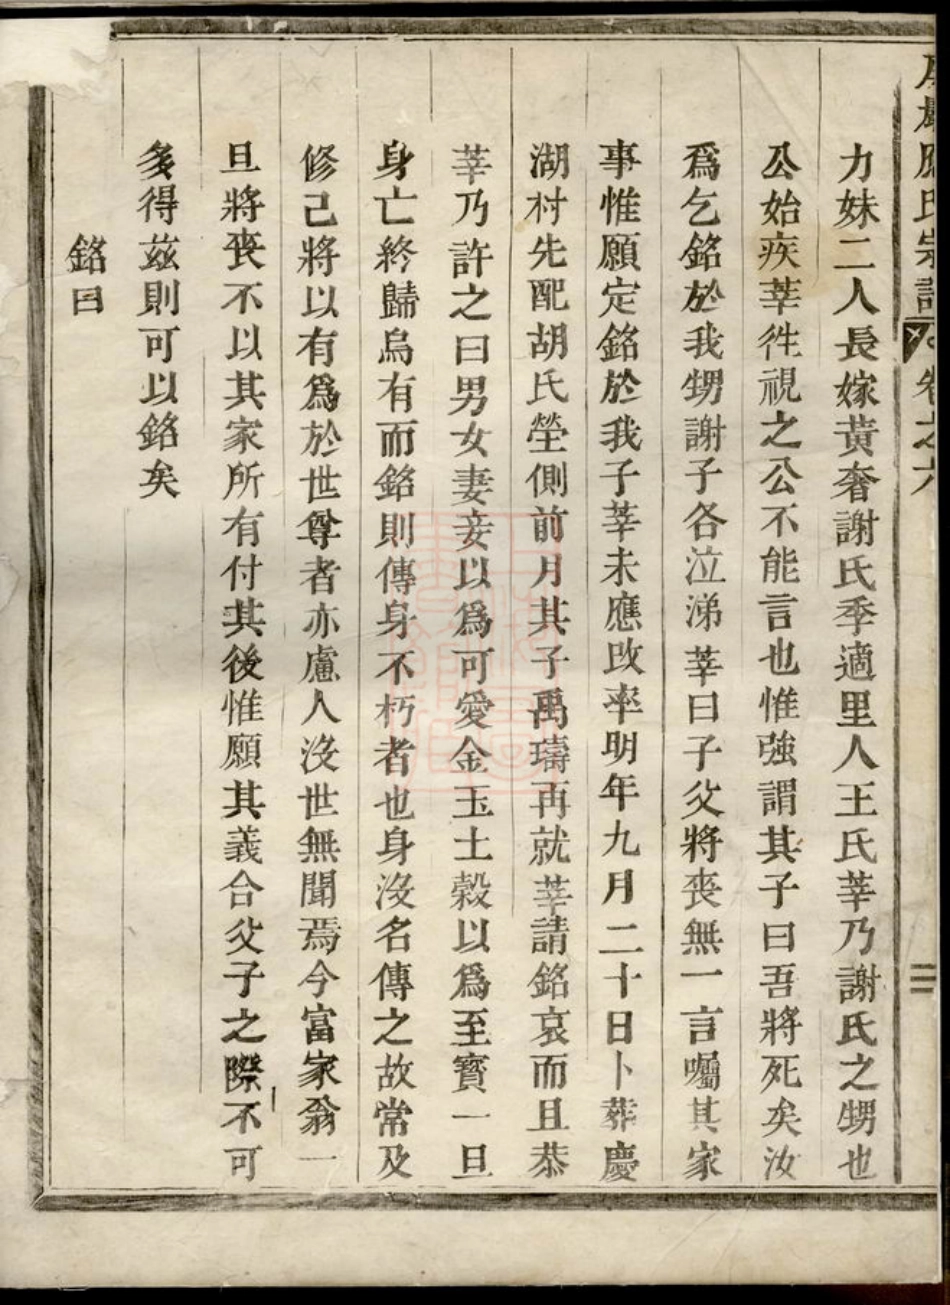 應氏宗譜 卷之六
力妹二人長嫁黄奢謝氏季適里人王氏莘乃謝氏之甥也
公始疾莘徃視之公不能言也惟強謂其子曰吾將死矣汝
爲乞銘於我甥謝子各泣涕莘曰子父將丧無一言囑其家
事惟願定銘於我子莘未應改率明年九月二十日卜葬慶
湖村先配胡氏塋側前月其子禹璹再就莘請銘哀而且恭
莘乃許之曰男女妻妾以爲可愛金玉土榖以爲至寳一旦
身亡終歸烏有而銘則傳身不朽者也身沒名傳之故常及
修己將以有爲於世尊者亦慮人沒世無聞焉今富家翁一
旦將丧不以其家所有付其後惟願其義合父子之際不可
多得兹則可以銘矣
銘曰
三